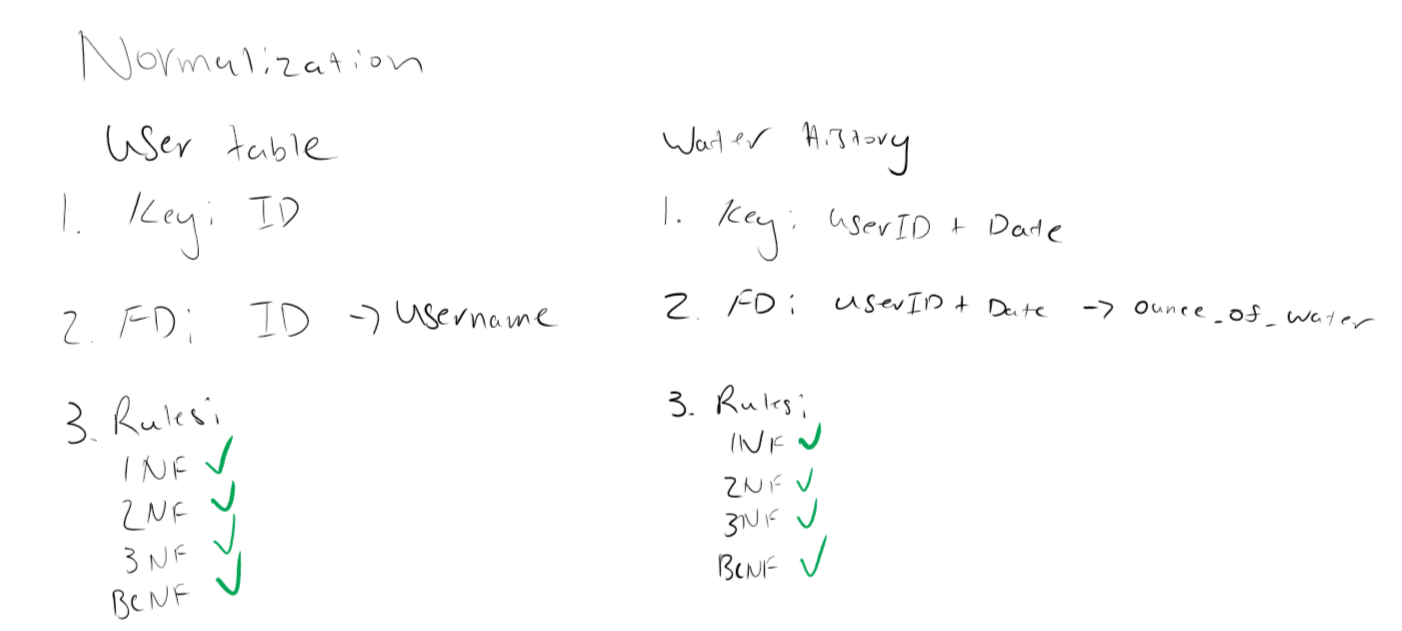 Normalization
User table
1. Key: ID
2. FD: ID -> Username
3. Rules:
1NF ✓
2NF ✓
3NF ✓
BCNF ✓
Water History
1. Key: userID + Date
2. FD: userID + Date -> ounce_of_water
3. Rules:
1NF ✓
2NF ✓
3NF ✓
BCNF ✓